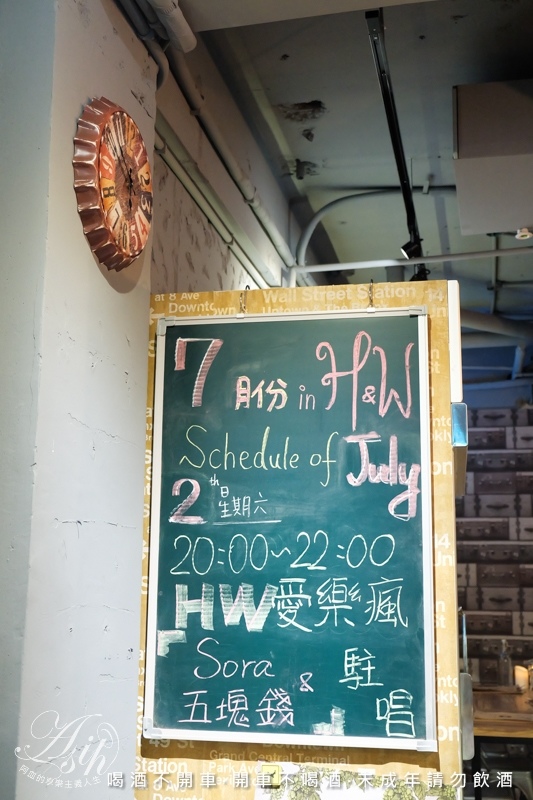 at 8 Ave
Downtown
Wall Street Station
7月份 in H&W
Schedule of July
2th 星期六
20:00~22:00
HW愛樂瘋
Sora & 駐唱
五塊錢
49 St
Grand Central Terminal
Park Ave
Asih
阿皿的享樂主義人生
喝酒不開車 開車不喝酒 未成年請勿飲酒